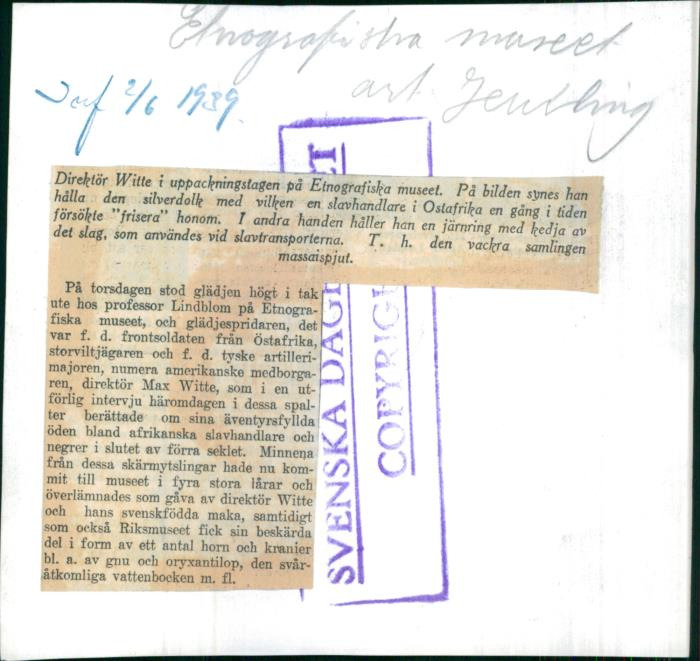 Etnografiska museet
2/6 1939.
art.
Direktör Witte i uppackningstagen på Etnografiska museet. På bilden synes han
hålla den silverdolk med vilken en slavhandlare i Ostafrika en gång i tiden
försökte "frisera" honom. I andra handen håller han en järnring med kedja av
det slag, som användes vid slavtransporterna. T. h. den vackra samlingen
massaispjut.
På torsdagen stod glädjen högt i tak
ute hos professor Lindblom på Etnogra-
fiska museet, och glädjespridaren, det
var f. d. frontsoldaten från Östafrika,
storviltjägaren och f. d. tyske artilleri-
majoren, numera amerikanske medborga-
ren, direktör Max Witte, som i en ut-
förlig intervju häromdagen i dessa spal-
ter berättade om sina äventyrsfyllda
öden bland afrikanska slavhandlare och
negrer i slutet av förra seklet. Minnena
från dessa skärmytslingar hade nu kom-
mit till museet i fyra stora lårar och
överlämnades som gåva av direktör Witte
och hans svenskfödda maka, samtidigt
som också Riksmuseet fick sin beskärda
del i form av ett antal horn och kranier
bl. a. av gnu och oryxantilop, den svår-
åtkomliga vattenbocken m. fl.
SVENSKA DAG
COPYRIG